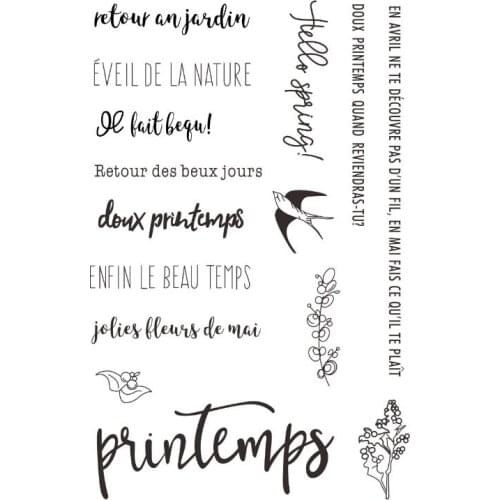 retour an jardin
ÉVEIL DE LA NATURE
Il fait bequ!
Retour des beux jours
doux printemps
ENFIN LE BEAU TEMPS
jolies fleurs de mai
printemps
Hello spring!
DOUX PRINTEMPS QUAND REVIENDRAS-TU?
EN AVRIL NE TE DÉCOUVRE PAS D'UN FIL, EN MAI FAIS CE QU'IL TE PLAÎT